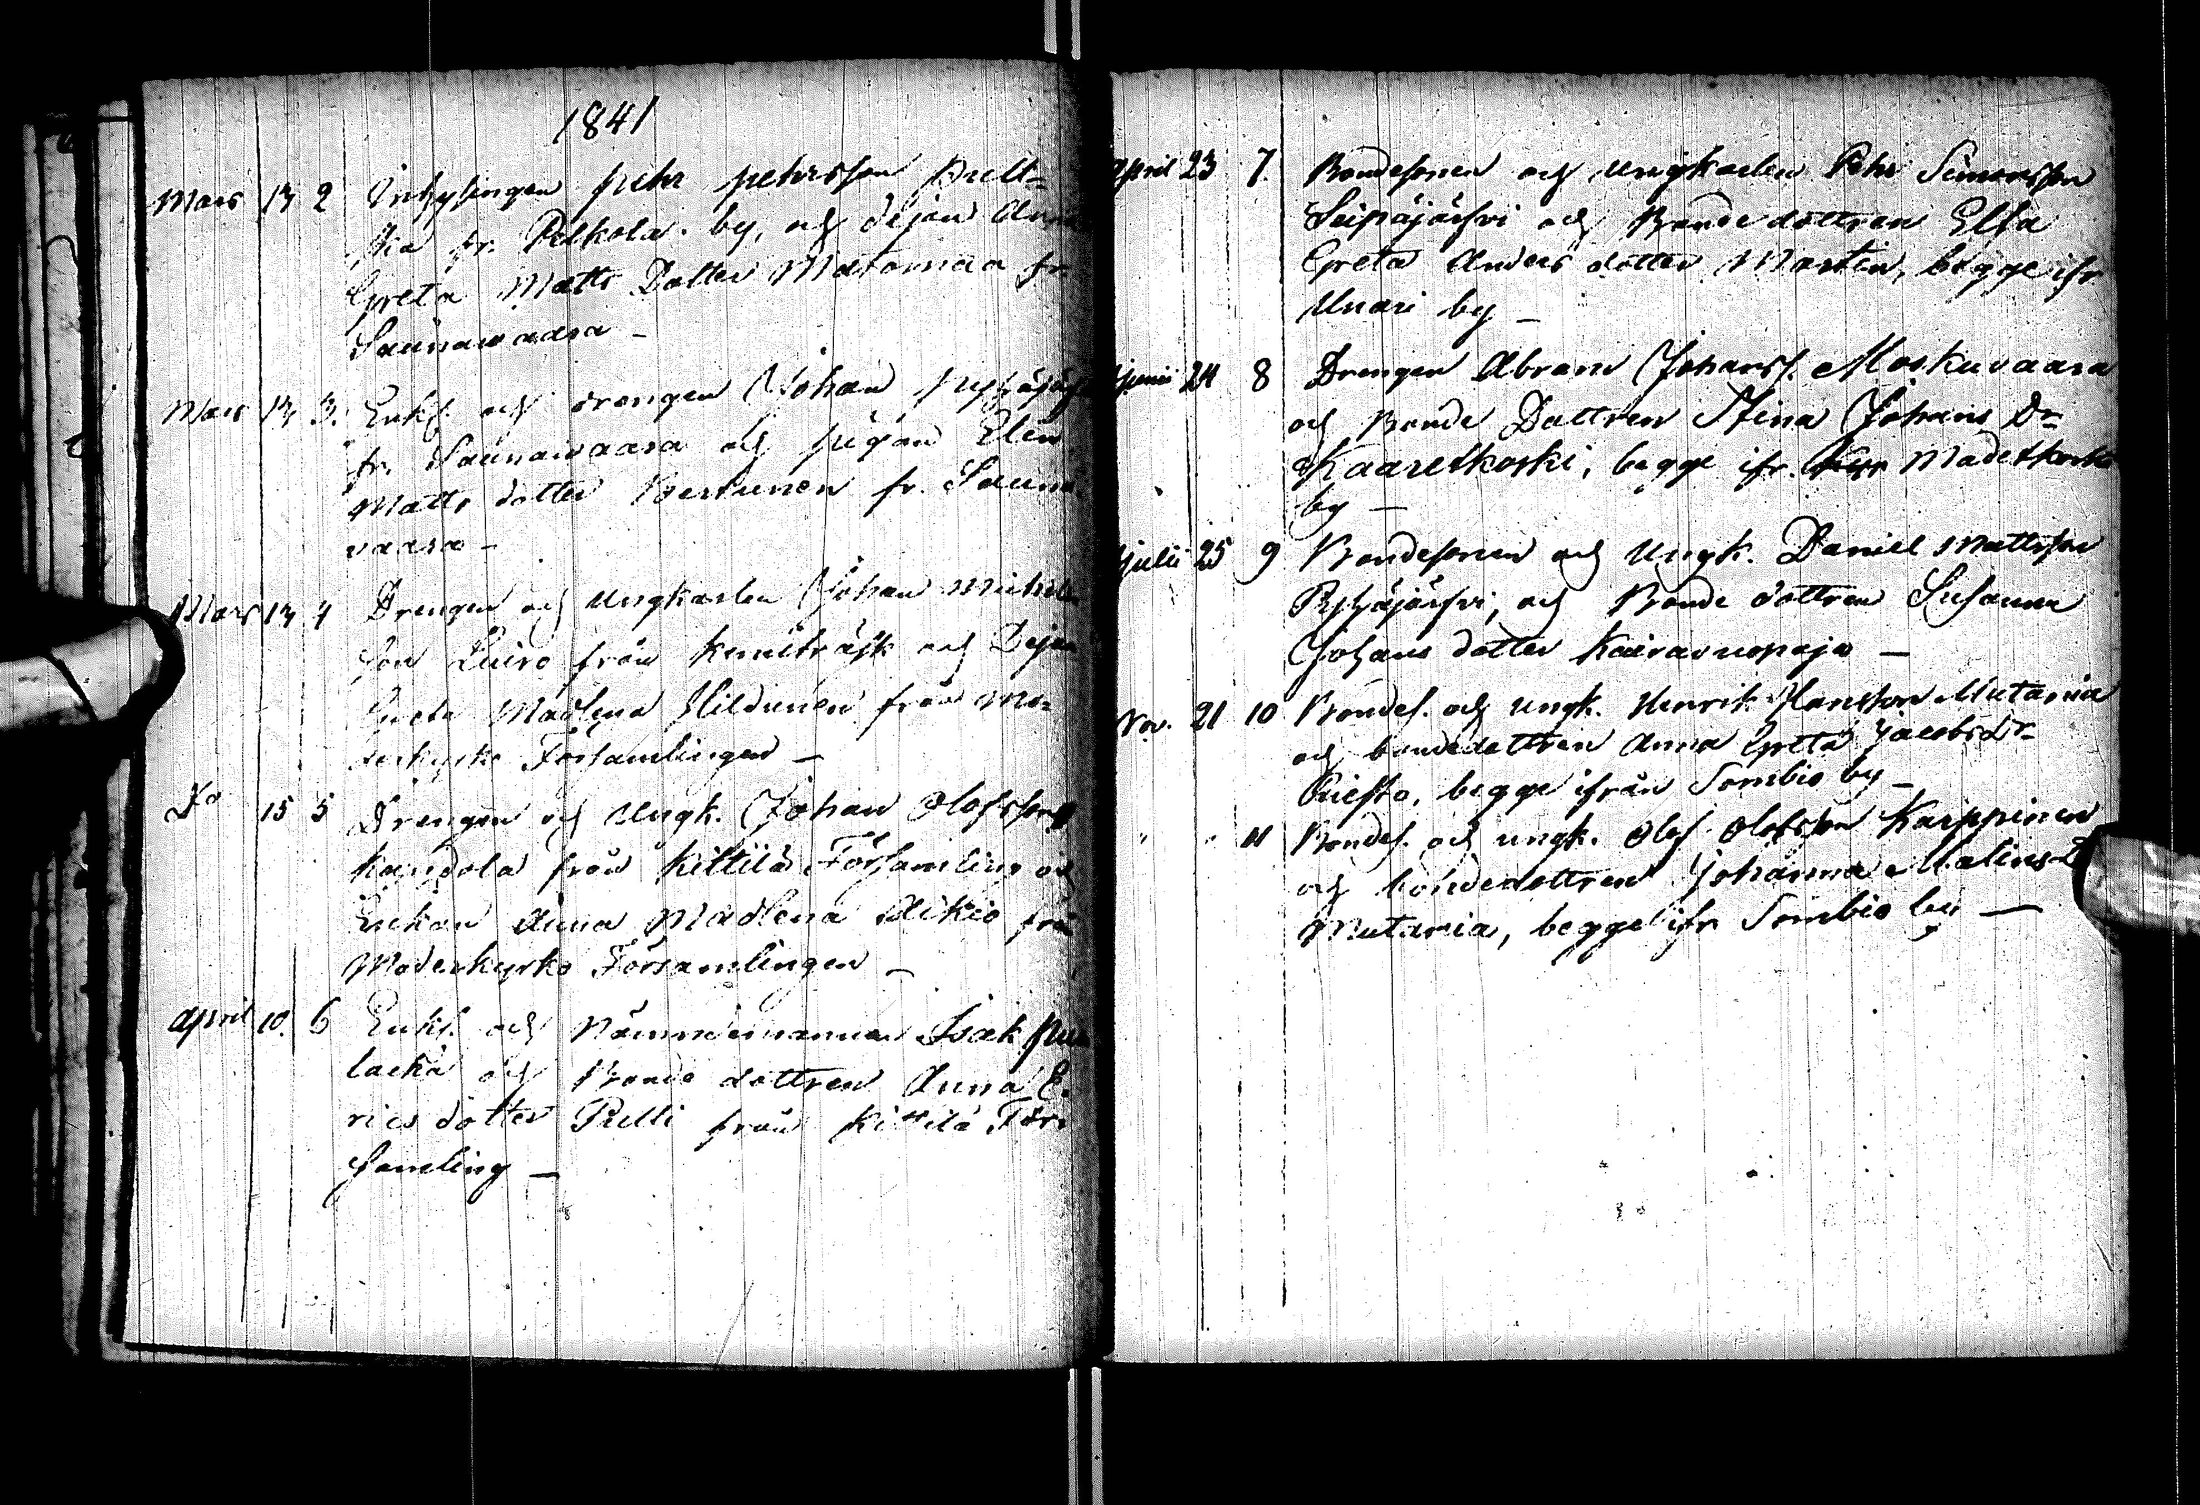 1841
Mars 14 2 Inhysingen Pehr Pehrsson Pult-
ka fr. Pelkola by, och Pejan Anna
Greta Matts Dotter Matomaa fr.
Saunawaara –
Mars 14 3. Enkl. och drengen Johan Pyhäjärf
fr. Saunawaara och pigan Elin
Matts dotter Kertunen fr. Sauna-
vaara –
Mars 14 4 Drengen och Ungkarlen Johan Michels
son Luiro från Kemiträsk och Pejan
Greta Madlena Hildunen från Mo-
derkyrko Församlingen –
Do 15 5 Drengen och Ungk. Johan Olofsson
från Kittilä Församling och
Enkan Anna Madlena Aikio från
Moderkyrko Församlingen –
April 10. 6 Enkl. och Nämndemannen Isak
lacka och Bonde dottren Anna E-
rics dotter Pelli från Kittilä För-
samling –
April 23 7. Bondesonen och Ungkarlen Pehr Simonsson
Seipäjärfvi och Bonde dottren Elsa
Greta Anders dotter Martin, begge ifr.
Unari by –
Junii 24 8 Drengen Abram Johanss. Moskuvaara
och Bonde Dottren Stina Johans Dr
Kaaretkoski, begge ifr. Madetkoski
by –
Julii 25 9 Bondesonen och Ungk. Daniel Mattsson
Pyhäjärfvi, och Bonde dottren Susanna
Johans dotter Kairavuopajo –
Nov. 21 10 Bondes. och Ungk. Henrik Hansson Mutania
och bondedottren Anna Greta Jacobs dr
Riesto, begge ifrån Sombio by –
" " 11 Bondes. och ungk. Olof Olofsson Karppinen
och bondedottren Johanna Malins D
Mutania, begge ifr Sombio by –